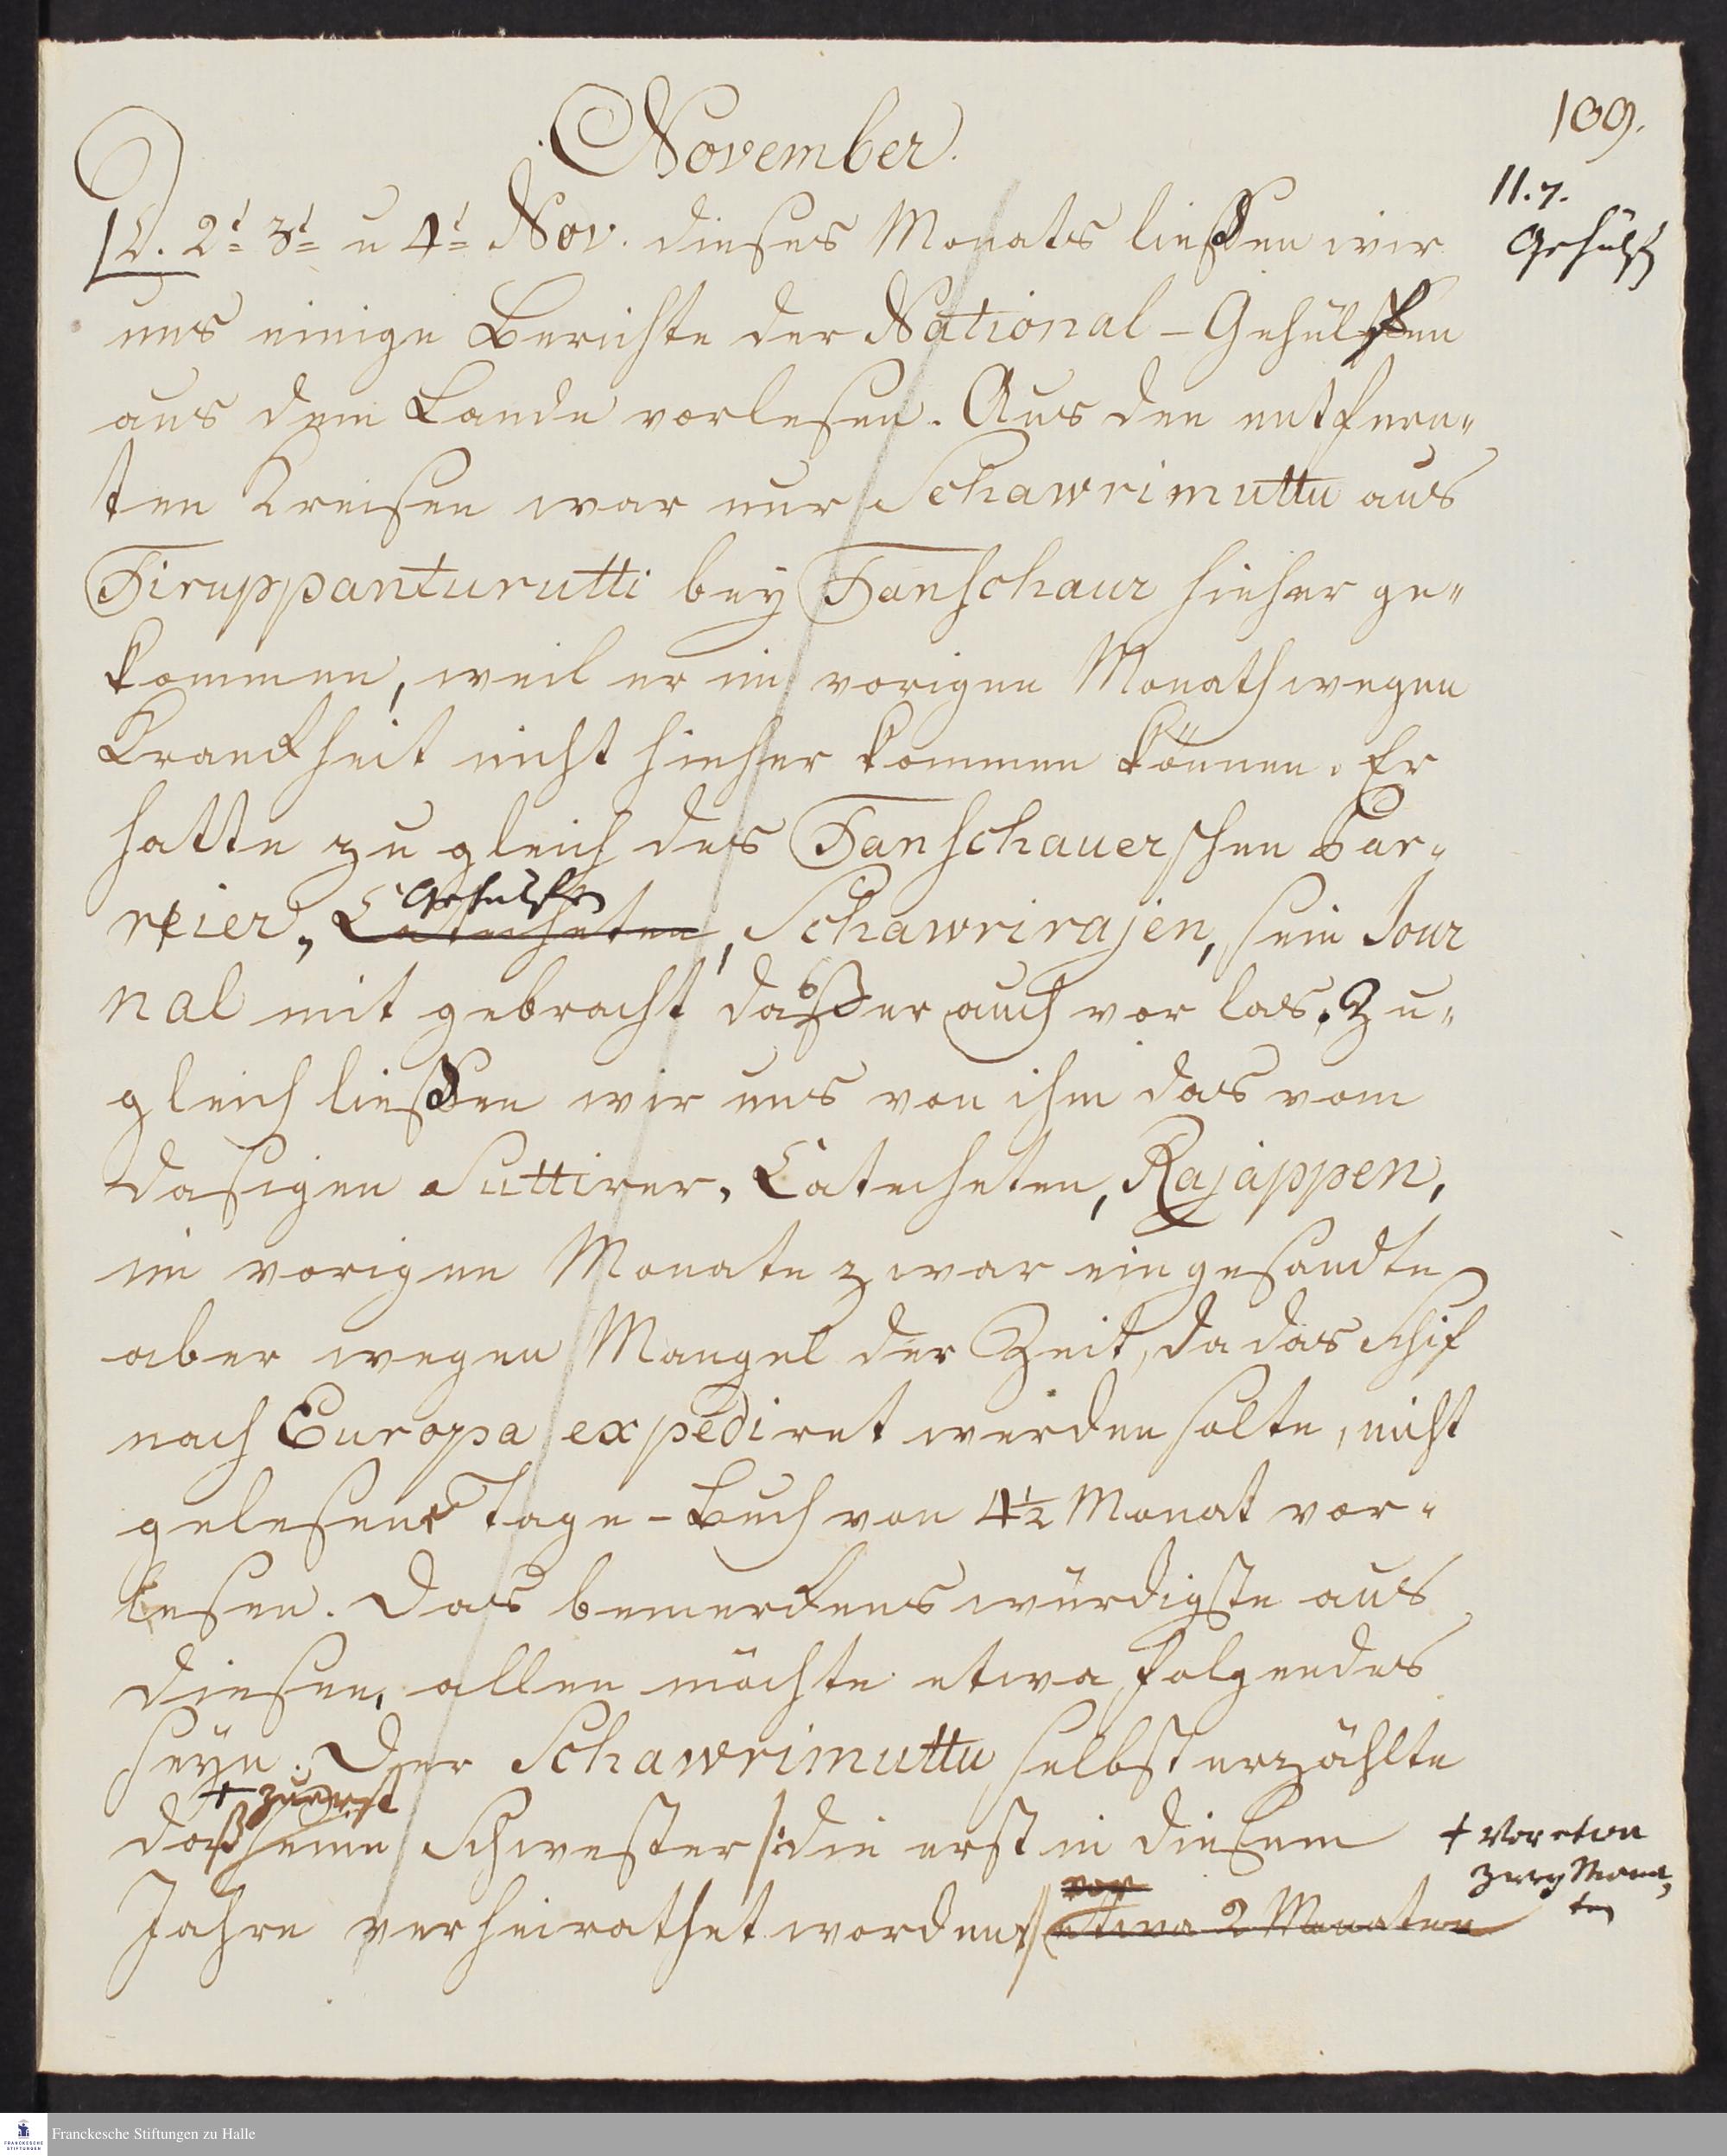 November.
109.
11.7.
Gehülf
D. 2t 3t u 4t Nov. dieses Monats ließen wir
uns einige Berichte der National-Gehülfen
aus dem Lande vorlesen. Aus den entfern"
ten Kreisen war nur Schawrimuttu aus
Tiruppanturutti bey Tanschaur hieher ge"
kommen, weil er im vorigen Monath wegen
Kranckheit nicht hieher kommen können. Er
hatte zugleich des Tanschauerschen Par"
Gehülfen
reier, Catecheten, Schawrirajen, sein Jour
nal mit gebracht daß er auch vor las. Zu"
gleich ließen wir uns von ihm das vom
dasigen Suttirer, Catecheten, Rajappen,
im vorigen Monate zwar eingesandte
aber wegen Mangel der Zeit, da das Schif
nach Europa expediret werden solte, nicht
gelesene Tage-Buch von 4½ Monat vor"
lesen. Das bemerckenswürdigste aus
diesen, allen möchte etwa folgendes
seyn. Der Schawrimuttu selbst erzählte
+ zuerst
daß seine Schwester /: die erst in diesem
+ Vor etwa
zwey Mona,
ten
Jahre verheirathet worden + :/
vor
etwa 2 Monaten
Franckesche Stiftungen zu Halle
FRANCKESCHE
STIFTUNGEN